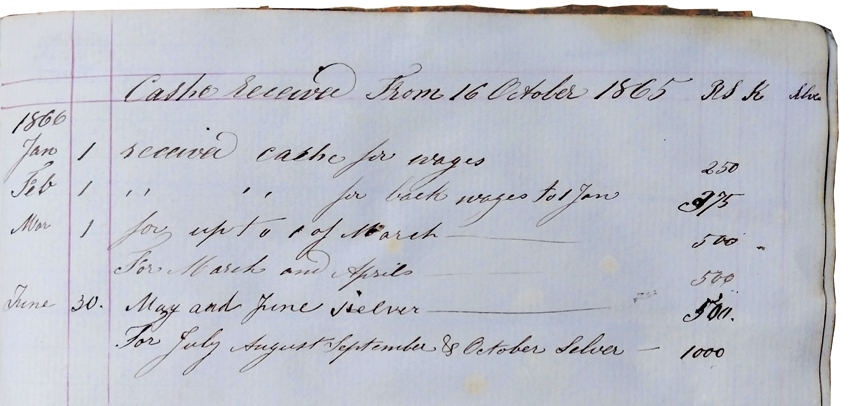 Cashe Received From 16 October 1865 RS K
1866
Jan 1 received cashe for wages 250
Feb 1 " " for back wages to 1 Jan 375
Mar 1 for up to 1 of March — 500 "
For March and Aprils — 500
June 30. May and June Selver — 500.
For July August September & October Selver — 1000